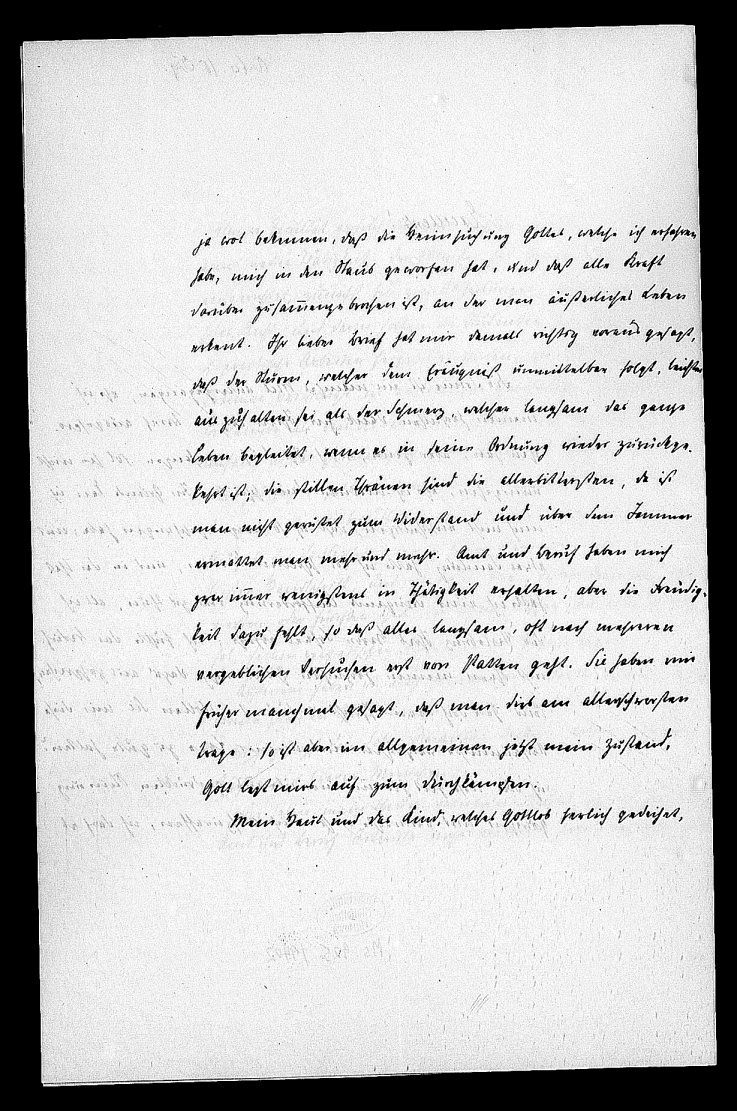 ja wol bekennen, daß die Heimsuchung Gottes, welche ich erfahren
habe, mich in den Staub geworfen hat, und daß alle Kraft
darüber zusam̅engebrochen ist, an der man äußerliches Leben
erkent. Ihr lieber Brief hat mir damals richtig vorausgesagt,
daß der Sturm, welcher dem Eräugniß unmittelbar folgt, leichter
auszuhalten sei als der Schmerz, welcher langsam das ganze
Leben begleitet, wenn es in seine Ordnung wieder zurückge-
kehrt ist; die stillen Thränen sind die allerbittersten, da ist
man nicht gerüstet zum Widerstand und über dem Jammer
ermattet man mehr und mehr. Amt und Beruf haben mich
zwar immer wenigstens in Thätigkeit erhalten, aber die Freudig-
keit dazu fehlt, so daß alles langsam, oft nach mehreren
vergeblichen Versuchen erst von Statten geht. Sie haben mir
früher manchmal gesagt, daß man dies am allerschwersten
trage: so ist aber im allgemeinen jetzt mein Zustand,
Gott legt mirs auf zum Durchkämpfen.
Mein Haus und das Kind, welches Gottlob herlich gedeihet,